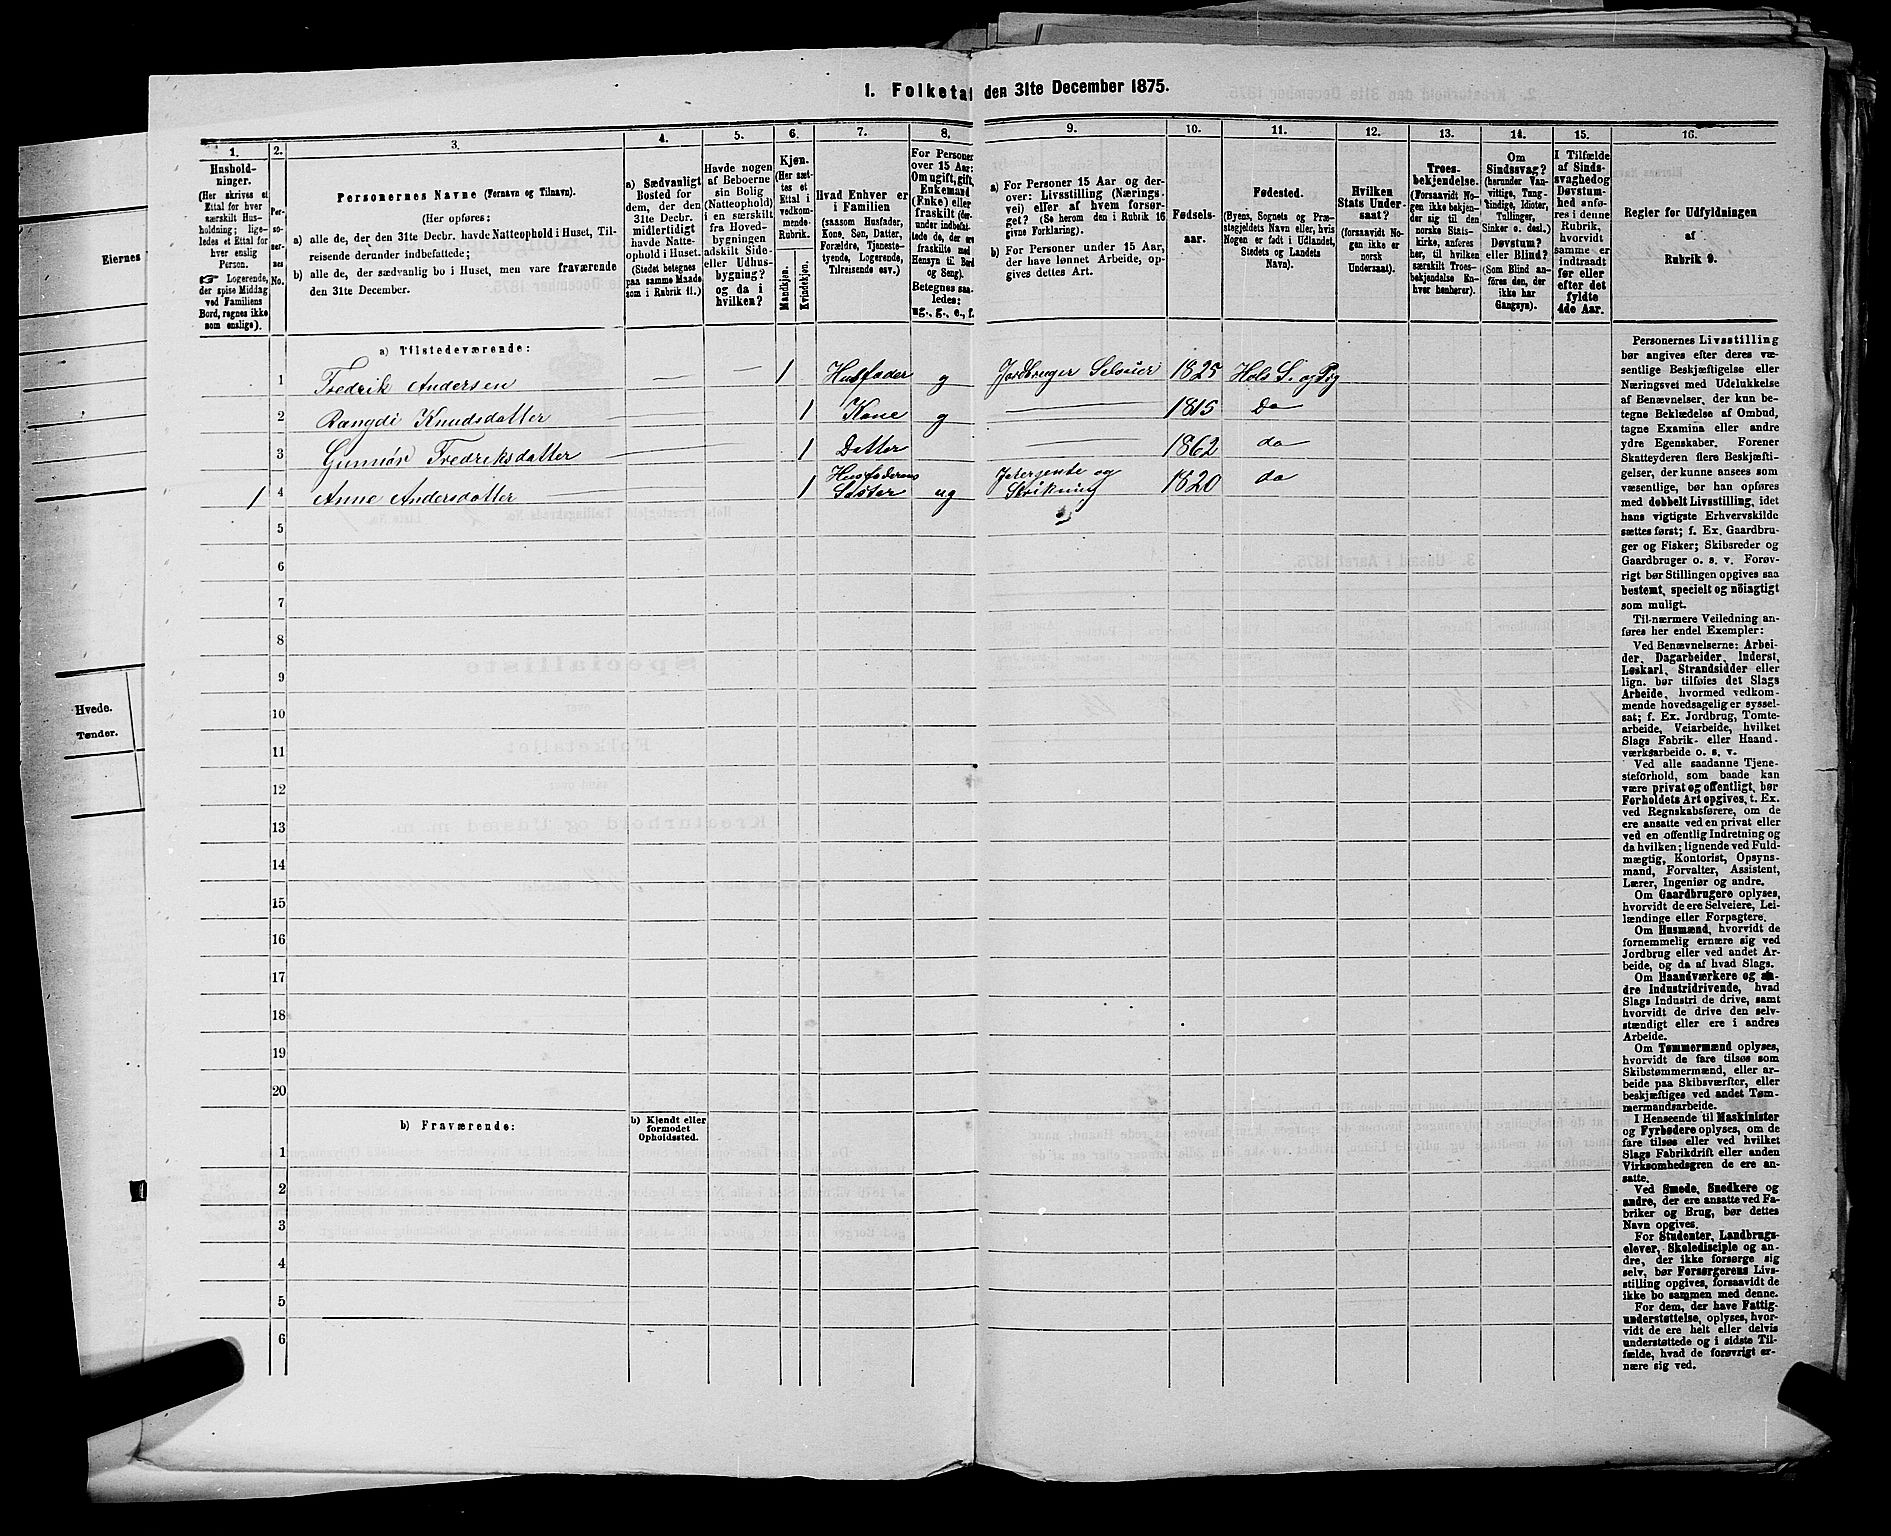 1. Folketal den 31te December 1875.
1.
Hushold-
ninger.
(Her skrives et
Ettal for hver
særskilt Hus-
holdning; lige-
ledes et Ettal for
hver enslig
Person.
☞ Logerende,
der spise Middag
ved Familiens
Bord, regnes ikke
som enslige).
2.
Per-
so-
ner-
nes
No.
3.
Personernes Navne (Fornavn og Tilnavn).
(Her opføres:
a) alle de, der den 31te Decbr. havde Natteophold i Huset, Til-
reisende derunder indbefattede;
b) alle de, der sædvanlig bo i Huset, men vare fraværende
den 31te December.
4.
a) Sædvanligt
Bosted for
dem, der den
31te Decbr.
midlertidigt
havde Natte-
ophold i Huset.
(Stedet betegnes
paa samme Maade
som i Rubrik 11.)
5.
Havde nogen
af Beboerne
sin Bolig
(Natteophold)
i en særskilt
fra Hoved-
bygningen
adskilt Side
eller Udhus-
bygning?
og da i
hvilken?
6.
Kjøn.
(Her sæt-
tes et
Ettal i
vedkom-
mende-
Rubrik.
Mandkjøn.
Kvindekjøn.
7.
Hvad Enhver er
i Familien
(saasom Husfader,
Kone, Søn, Datter,
Forældre, Tjeneste-
tyende, Logerende,
Tilreisende osv.)
8.
For Personer
over 15 Aar:
Om ugift, gift,
Enkemand
(Enke) eller
fraskilt (der-
under indbefat-
tede de, der ere
fraskilte med
Hensyn til Bord
og Seng).
Betegnes saa-
ledes:
ug., g., e., f.
9.
a) For Personer 15 Aar og der-
over: Livsstilling (Nærings-
vei) eller af hvem forsør-
get? (Se herom den i Rubrik 16
givne Forklaring).
b) For Personer under 15 Aar,
der have lønnet Arbeide, op-
gives dettes Art.
10.
Fødsels-
aar.
11.
Fødested.
(Byens, Sognets og Præ-
stegjeldets Navn eller, hvis
Nogen er født i Udlandet,
Stedets og Landets
Navn).
12.
Hvilken
Stats Under-
saat?
(foraavidt No-
gen ikke er
norsk
Undersaat).
13.
Troes-
bekjendelse.
(Forsaavidt No-
gen ikke bekjen-
der sig til den
norske Stats-
kirke, anføres
her, til hvilken
særskilt Troes-
bekjendelse En-
hver henhører).
14.
Om
Sindssvag?
(herunder Van-
vittige, Idioter,
Tullinger,
Sinker o. desl.)
Døvstum?
eller Blind?
(Som Blind an-
føres den, der
ikke har
Gangsyn).
15.
I Tilfælde
af Sinds-
svaghed og
Døvstum-
hed anfø-
res i denne
Rubrik,
hvorvidt
samme er
indtraadt
før eller
efter det
fyldte
4de Aar.
16.
Regler for Udfyldningen
af
Rubrik 9.
a) Tilstedeværende:
1 Fredrik Andersen — — 1 Husfader g Jordbruger Selveier 1825 Hols S. og Pg
2 Rangdi Knudsdatter — 1 Kone g — 1815 Do
3 Gunnor Fredriksdatter — 1 Datter — 1862 do
1 4 Anne Andersdatter — 1 Husfaderens
Søster ug
og
1820 do
5
6
7
8
9
10
11
12
13
14
15
16
17
18
19
20
b) Fraværende:
b) Kjendt eller
formodet
Opholdssted.
1
2
3
4
5
6
Personernes Livsstilling
bør angives efter deres væ-
sentlige Beskjæftigelse eller
Næringsvei med Udelukkelse
af Benævnelser, der kun be-
tegne Beklædelse af Ombud,
tagne Examina eller andre
ydre Egenskaber. Forener
Skatteyderen flere Beskjæfti-
gelser, der kunne ansees som
væsentlige, bør han opføres
med dobbelt Livsstilling, idet
hans vigtigste Erhvervskilde
sættes først; f. Ex. Gaardbru-
ger og Fisker; Skibsreder og
Gaardbruger o. s. v. Forøv-
rigt bør Stillingen opgives saa
bestemt, specielt og nøiagtigt
som muligt.
Til nærmere Veiledning an-
føres her endel Exempler:
Ved Benævnelserne: Arbei-
der, Dagarbeider, Inderst,
Løskarl, Strandsidder eller
lign. bør tilføies det Slags
Arbeide, hvormed vedkom-
mende hovedsagelig er syssel-
sat; f. Ex. Jordbrug, Tomte-
arbeide, Veiarbeide, hvilket
Slags Fabrik- eller Haand-
værksarbeide o. s. v.
Ved alle saadanne Tjene-
steforhold, som baade kan
være privat og offentligt, bør
Forholdets Art opgives, t. Ex.
ved Regnskabsførere, om de
ere ansatte ved en privat eller
ved en offentlig Indretning og
da hvilken; lignende ved Fuld-
mægtig, Kontorist, Opsyns-
mand, Forvalter, Assistent,
Lærer, Ingeniør og andre.
Om Gaardbrugere oplyses,
hvorvidt de ere Selveiere, Lei-
lændinge eller Forpagtere.
Om Husmænd, hvorvidt de
fornemmelig ernære sig ved
Jordbrug eller ved andet Ar-
beide, og da af hvad Slags.
Om Haandværkere og an-
dre Industridrivende, hvad
Slags Industri de drive, samt
hvorvidt de drive den selv-
stændigt eller ere i andres
Arbeide.
Om Tømmermænd oplyses,
hvorvidt de fare tilsøs som
Skibstømmermænd, eller ar-
beide paa Skibsværfter, eller
beskjæftiges ved andet Tøm-
mermandsarbeide.
I Henseende til Maskinister
og Fyrbødere oplyses, om de
fare tilsøs eller ved hvilket
Slags Fabrikdrift eller anden
Virksomhedsgren de ere an-
satte.
Ved Smede, Snedkere og
andre, der ere ansatte ved Fa-
briker og Brug, bør dettes
Navn opgives.
For Studenter, Landbrugs-
elever, Skoledisciple og an-
dre, der ikke forsørge sig
selv, bør Forsørgerens Livs-
stilling opgives, forsaavidt de
ikke bo sammen med denne.
For dem, der have Fattig-
understøttelse, oplyses, hvor-
vidt de ere helt eller delvis
understøttede og i sidste Til-
fælde, hvad de forøvrigt er-
nære sig ved.
Eiernes
Hvede.
Tønder.